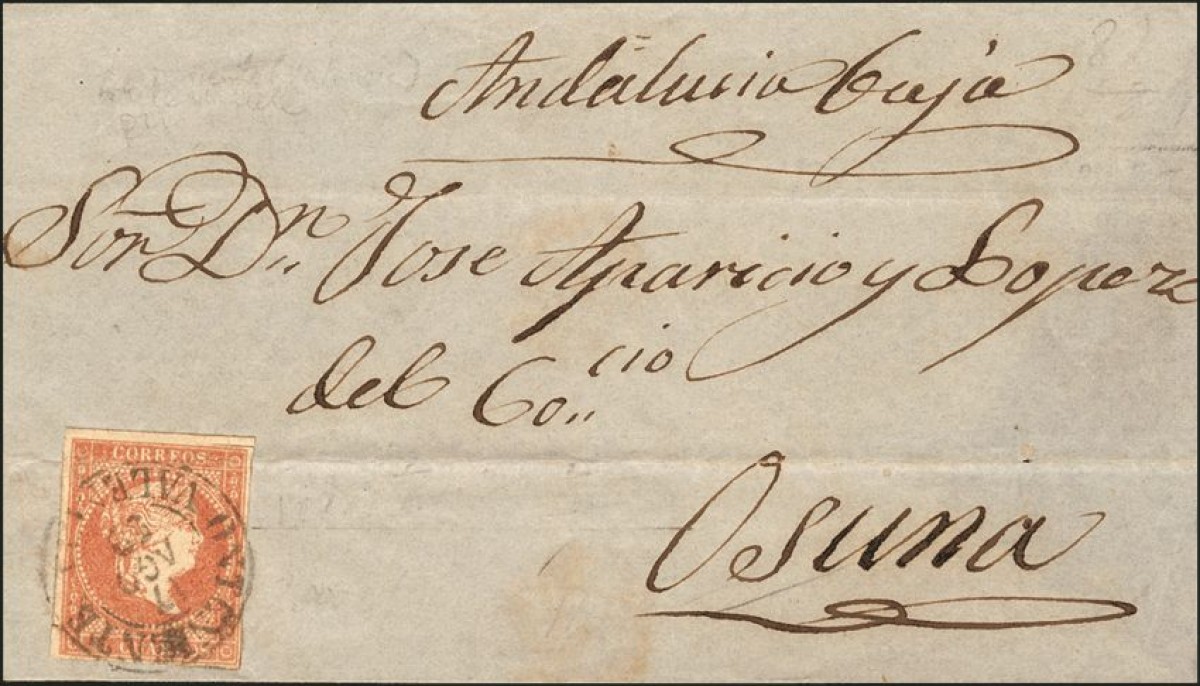 Andalucia baja
Sor. Dn. Jose Aparicio y Lopez
del Co..cio
Osuna
CORREOS
ONTENIENTE
VALEN
AGO